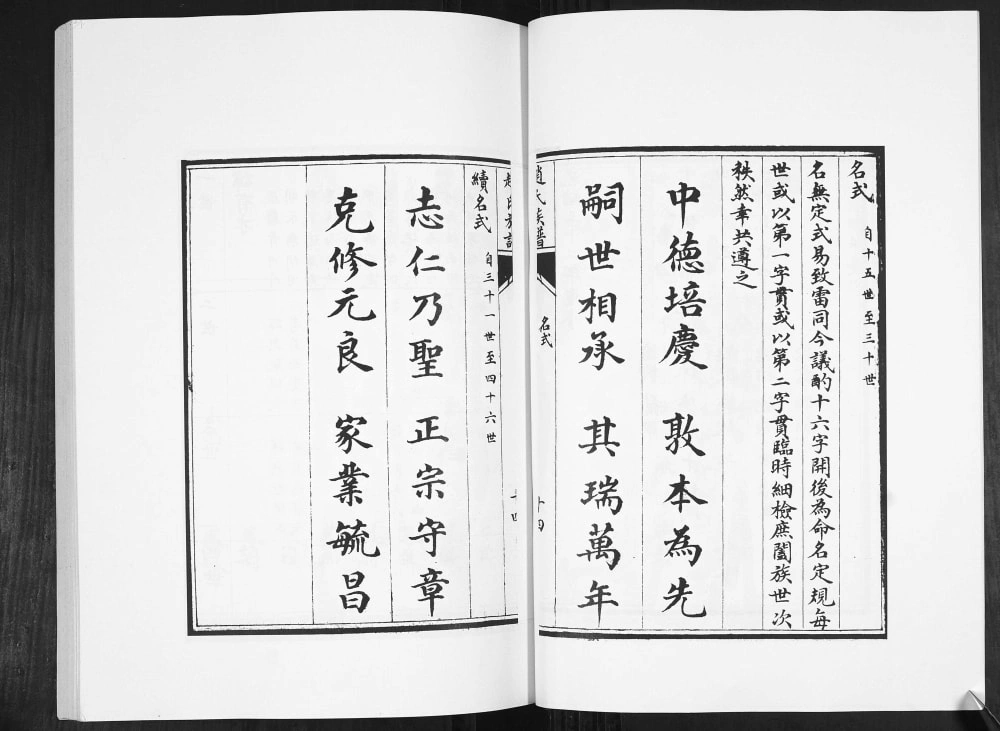 名式 自十五世至三十世
名無定式易致雷同今議酌十六字開後為命名定規每
世或以第一字貫或以第二字貫臨時細檢庶闔族世次
秩然幸共遵之
中德培慶 敦本為先
嗣世相承 其瑞萬年
趙氏族譜 名式 十四
續名式 自三十一世至四十六世
志仁乃聖 正宗守章
克修元良 家業毓昌